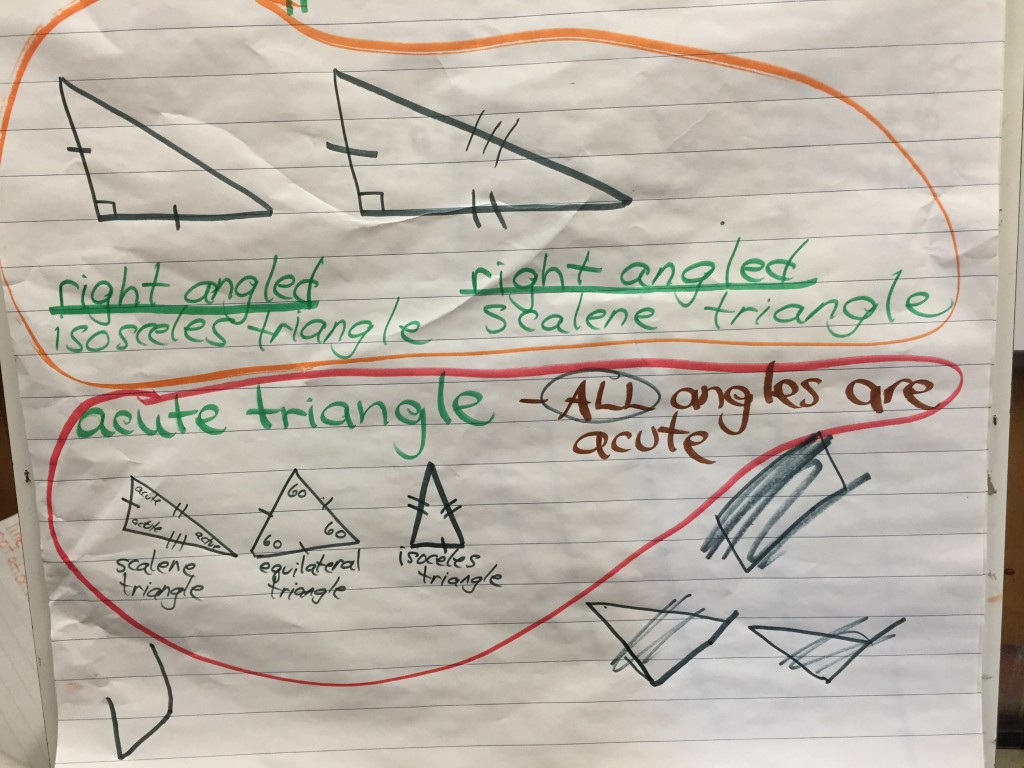 right angled
isosceles triangle
right angled
scalene triangle
acute triangle - ALL angles are
acute
acute
acute
acute
scalene
triangle
60
60
60
equilateral
triangle
isoceles
triangle